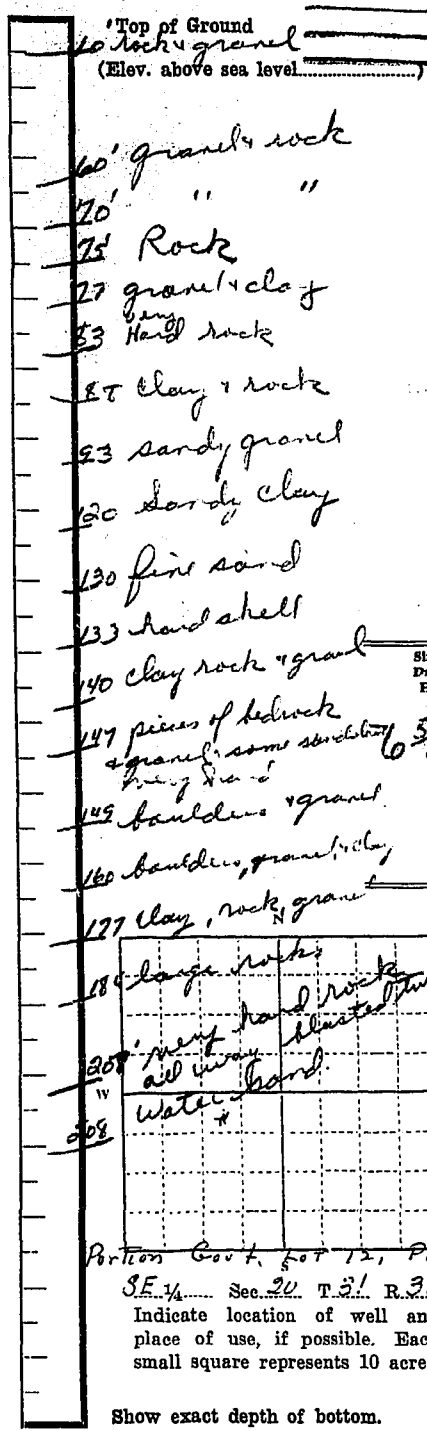 Top of Ground
10' rock & gravel
(Elev. above sea level....................)
60' gravel & rock
70' " "
75' Rock
77 gravel & clay
83 very Hard rock
87 Clay & rock
93 sandy gravel
120 Sandy Clay
130 fine sand
133 hard shell
140 clay rock & gravel
147 pieces of bedrock
& gravel & some
very hard
149 boulders & gravel
160 boulders, gravel, & clay
177 Clay, rock, gravel
N
184 large rocks
208' very hard rock
all way blasted
W
208 Water sand.
Portion Govt. Lot 12,
S
SE 1/4 Sec. 20 T 31 R 3
Indicate location of well an
place of use, if possible. Eac
small square represents 10 acre
Show exact depth of bottom.